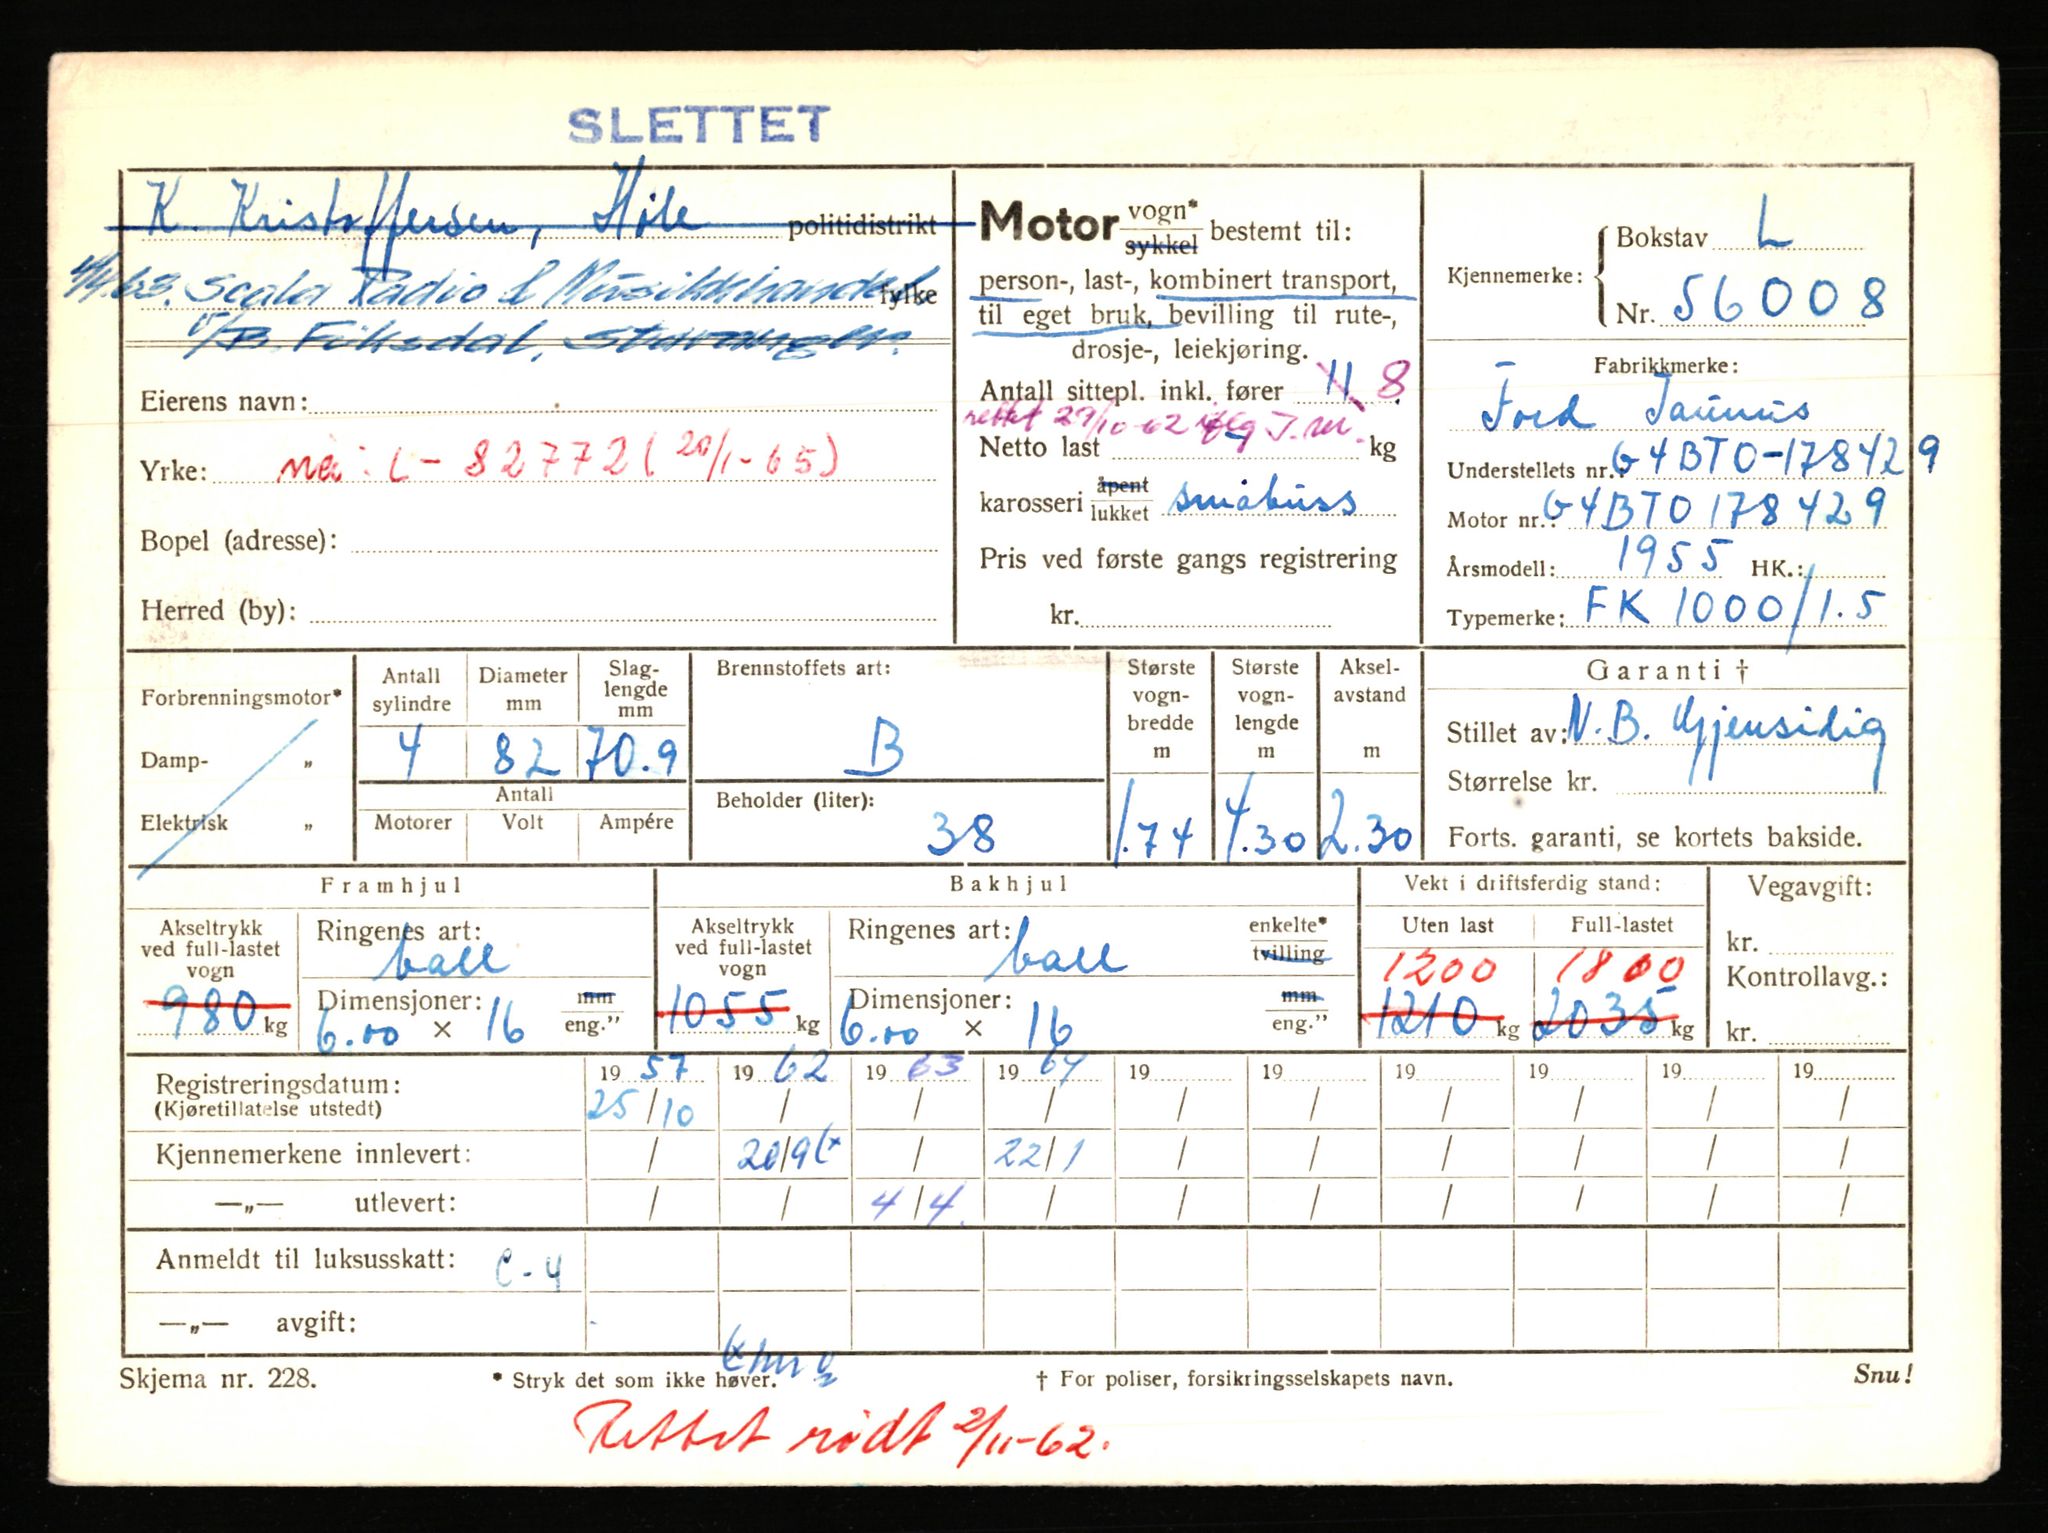 SLETTET
K. Kristoffersen, Höle politidistrikt
4/4.63. Scala Radio & Musikkhandel fylke
v/B. Fiksdal, Stavanger.
Eierens navn:
Yrke: nei: L-82772 (20/1-65)
Bopel (adresse):
Herred (by):
Motor vogn* sykkel bestemt til:
person-, last-, kombinert transport,
til eget bruk, bevilling til rute-,
drosje-, leiekjøring.
Antall sittepl. inkl. fører 11 8
rettet 29/10-62 iflg
Netto last kg
karosseri åpent lukket småbuss
Pris ved første gangs registrering
kr.
Kjennemerke: Bokstav L
Nr. 56008
Fabrikkmerke:
Ford Taunus
Understellets nr.: G4BTO-178429
Motor nr.: G4BTO178429
Årsmodell: 1955 HK.:
Typemerke: FK 1000/1.5
Forbrenningsmotor*
Damp- „
Elektrisk „
Antall sylindre 4
Diameter mm 82
Slaglengde mm 70.9
Antall
Motorer Volt Ampére
Brennstoffets art:
B
Beholder (liter):
38
Største vogn-bredde m 1.74
Største vogn-lengde m 4.30
Aksel-avstand m 2.30
Garanti †
Stillet av: N.B. Gjensidig
Størrelse kr.
Forts. garanti, se kortets bakside.
Framhjul
Akseltrykk ved full-lastet vogn 980 kg
Ringenes art: ball
Dimensjoner: mm
6.00 × 16 eng."
Bakhjul
Akseltrykk ved full-lastet vogn 1055 kg
Ringenes art: ball enkelte* tvilling
Dimensjoner: mm
6.00 × 16 eng."
Vekt i driftsferdig stand:
Uten last Full-lastet
1200 1800
1210 kg 2035 kg
Vegavgift:
kr.
Kontrollavg.:
kr.
Registreringsdatum: 1957 1962 1963 1964 19 19 19 19 19 19
(Kjøretillatelse utstedt) 25/10 / / / / / / / / /
Kjennemerkene innlevert: / 20/9(x / 22/1 / / / / / /
—„— utlevert: / / 4/4. / / / / / / /
Anmeldt til luksusskatt: C-4
—„— avgift:
Skjema nr. 228.
* Stryk det som ikke høver.
† For poliser, forsikringsselskapets navn.
Snu!
Rettet rödt 2/11-62.